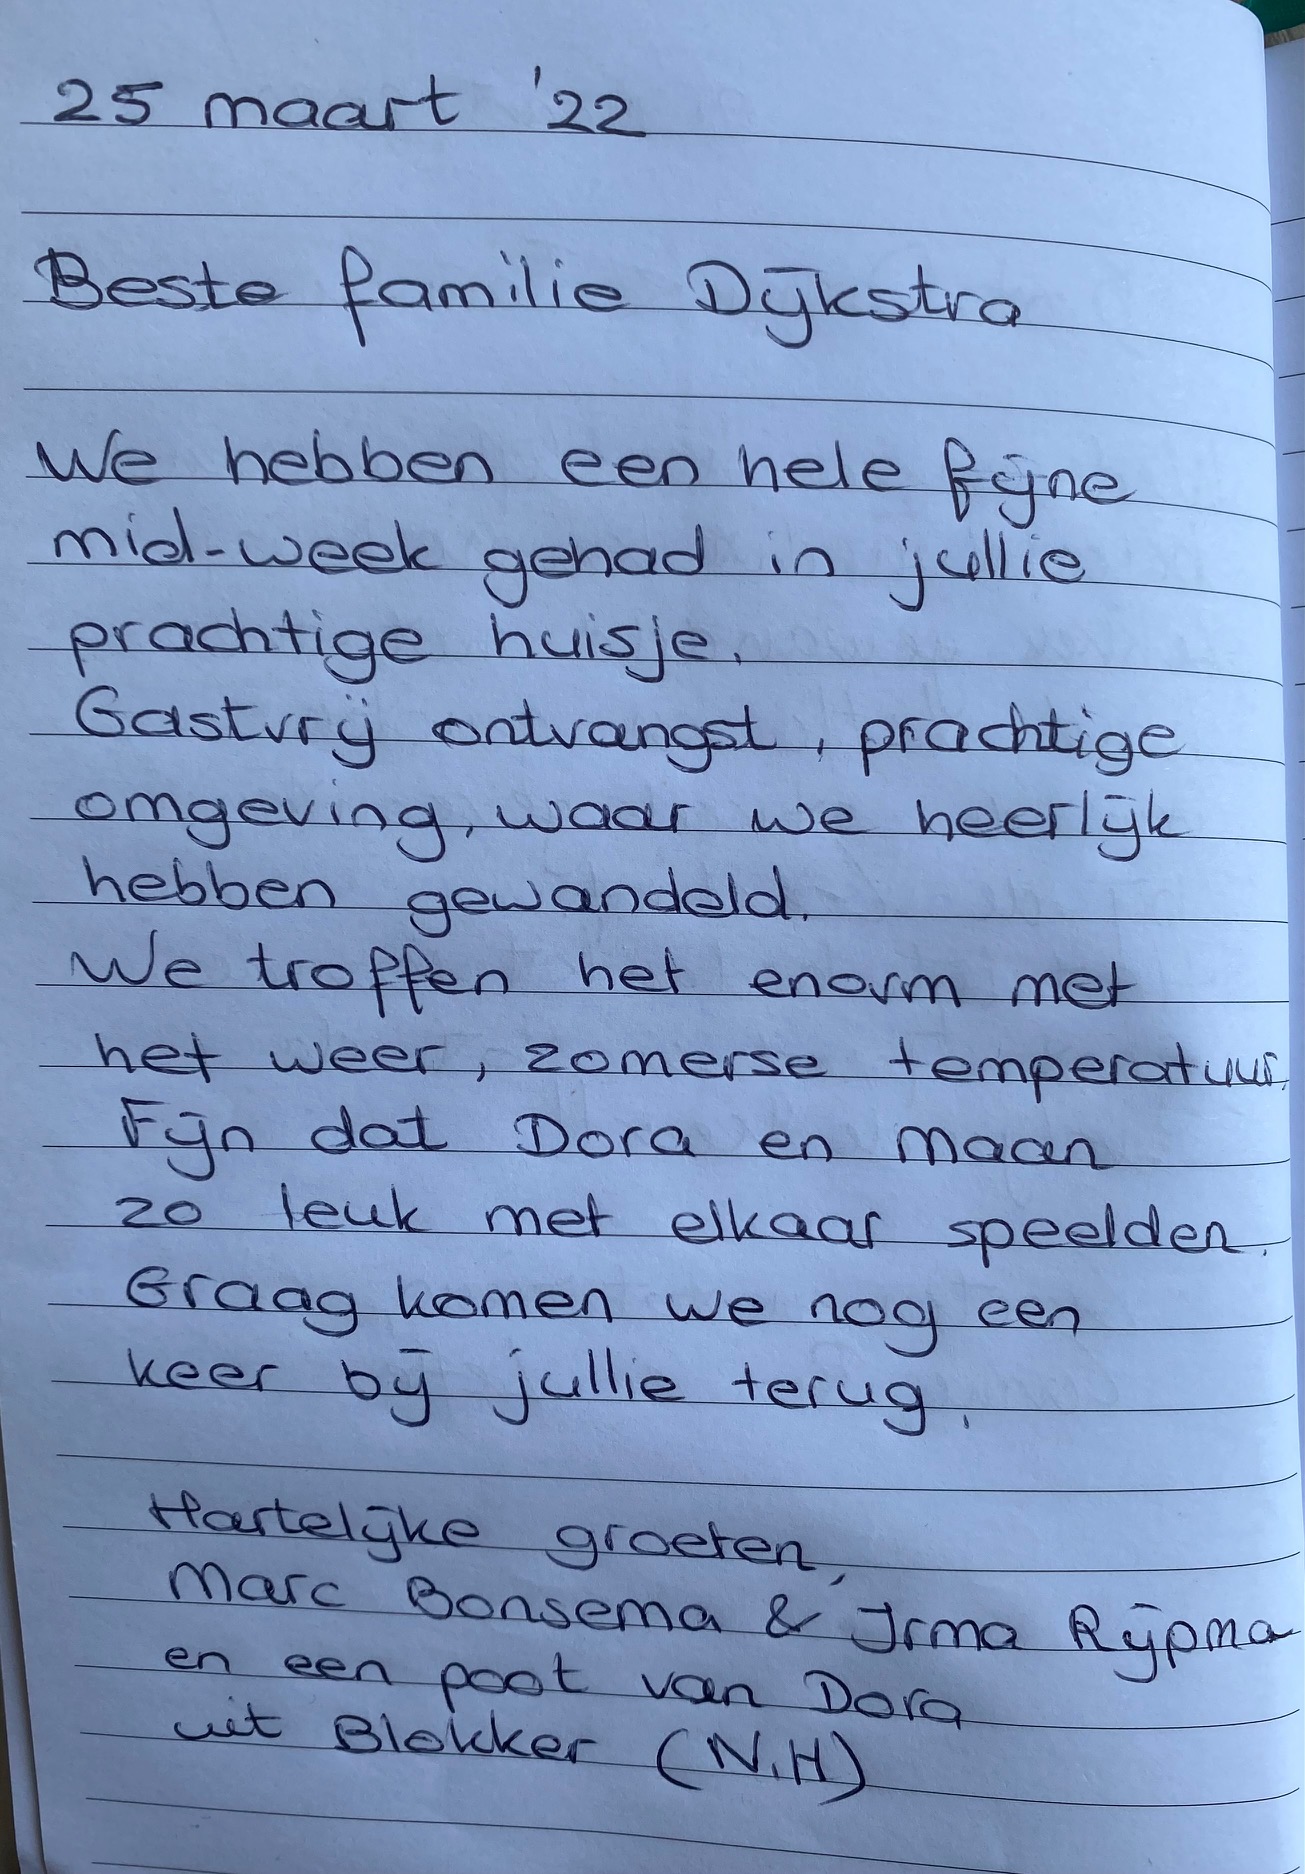 25 maart '22
Beste familie Dijkstra
We hebben een hele fijne
mid-week gehad in jullie
prachtige huisje.
Gastvrij ontvangst, prachtige
omgeving, waar we heerlijk
hebben gewandeld.
We troffen het enorm met
het weer, zomerse temperatuur.
Fijn dat Dora en Maan
zo leuk met elkaar speelden.
Graag komen we nog een
keer bij jullie terug.
Hartelijke groeten,
Marc Bonsema & Irma Rijpma
en een poot van Dora
uit Blokker (N.H)